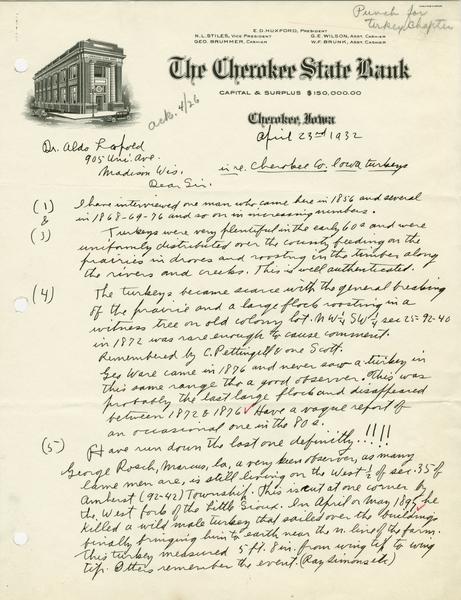 Punch for
turkey Chapter
E. D. HUXFORD, PRESIDENT
N. L. STILES, VICE PRESIDENT G. E. WILSON, ASST. CASHIER
GEO. BRUMMER, CASHIER W. F. BRUNK, ASST. CASHIER
The Cherokee State Bank
CAPITAL & SURPLUS $150,000.00
ack. 4/26
Cherokee, Iowa
April 23rd 1932
Dr. Aldo Leopold
905 Uni. Ave.
Madison Wis.
in re. Cherokee Co. Iowa turkeys
Dear Sir.
(1) I have interviewed one man who came here in 1856 and several
& in 1868-69-76 and so on in increasing numbers.
(3) Turkeys were very plentiful in the early 60s and were
uniformly distributed over the county feeding on the
prairies in droves and roosting in the timber along
the rivers and creeks. This is well authenticated.
(4) The turkeys became scarce with the general breaking
of the prairie and a large flock roosting in a
witness tree on old colony lot. N W 1/4 S W 1/4 sec 25-92-40
in 1872 was rare enough to cause comment.
Remembered by C. Pettingill & one Scott.
Geo Ware came in 1876 and never saw a turkey in
this same range tho a good observer. This was
probably the last large flock and disappeared
between 1872 & 1876 Have a vague report of
an occasional one in the 80s.
(5) Have run down the last one definitly...!!!!
George Rosch, Marcus, Ia, a very keen observer, as many
lame men are, is still living on the West 1/2 of sec. 35 of
Amherst (92-42) Township. This is cut at one corner by
the West fork of the Little Sioux. In April or May 1895 he
killed a wild male turkey that sailed over the buildings
finally bringing him to earth near the n. line of the farm.
This turkey measured 5 ft. 8 in. from wing tip to wing
tip. Others remember the event. (Ray Simons etc)